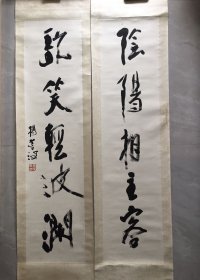 陰陽相主客
歌笑輕波瀾